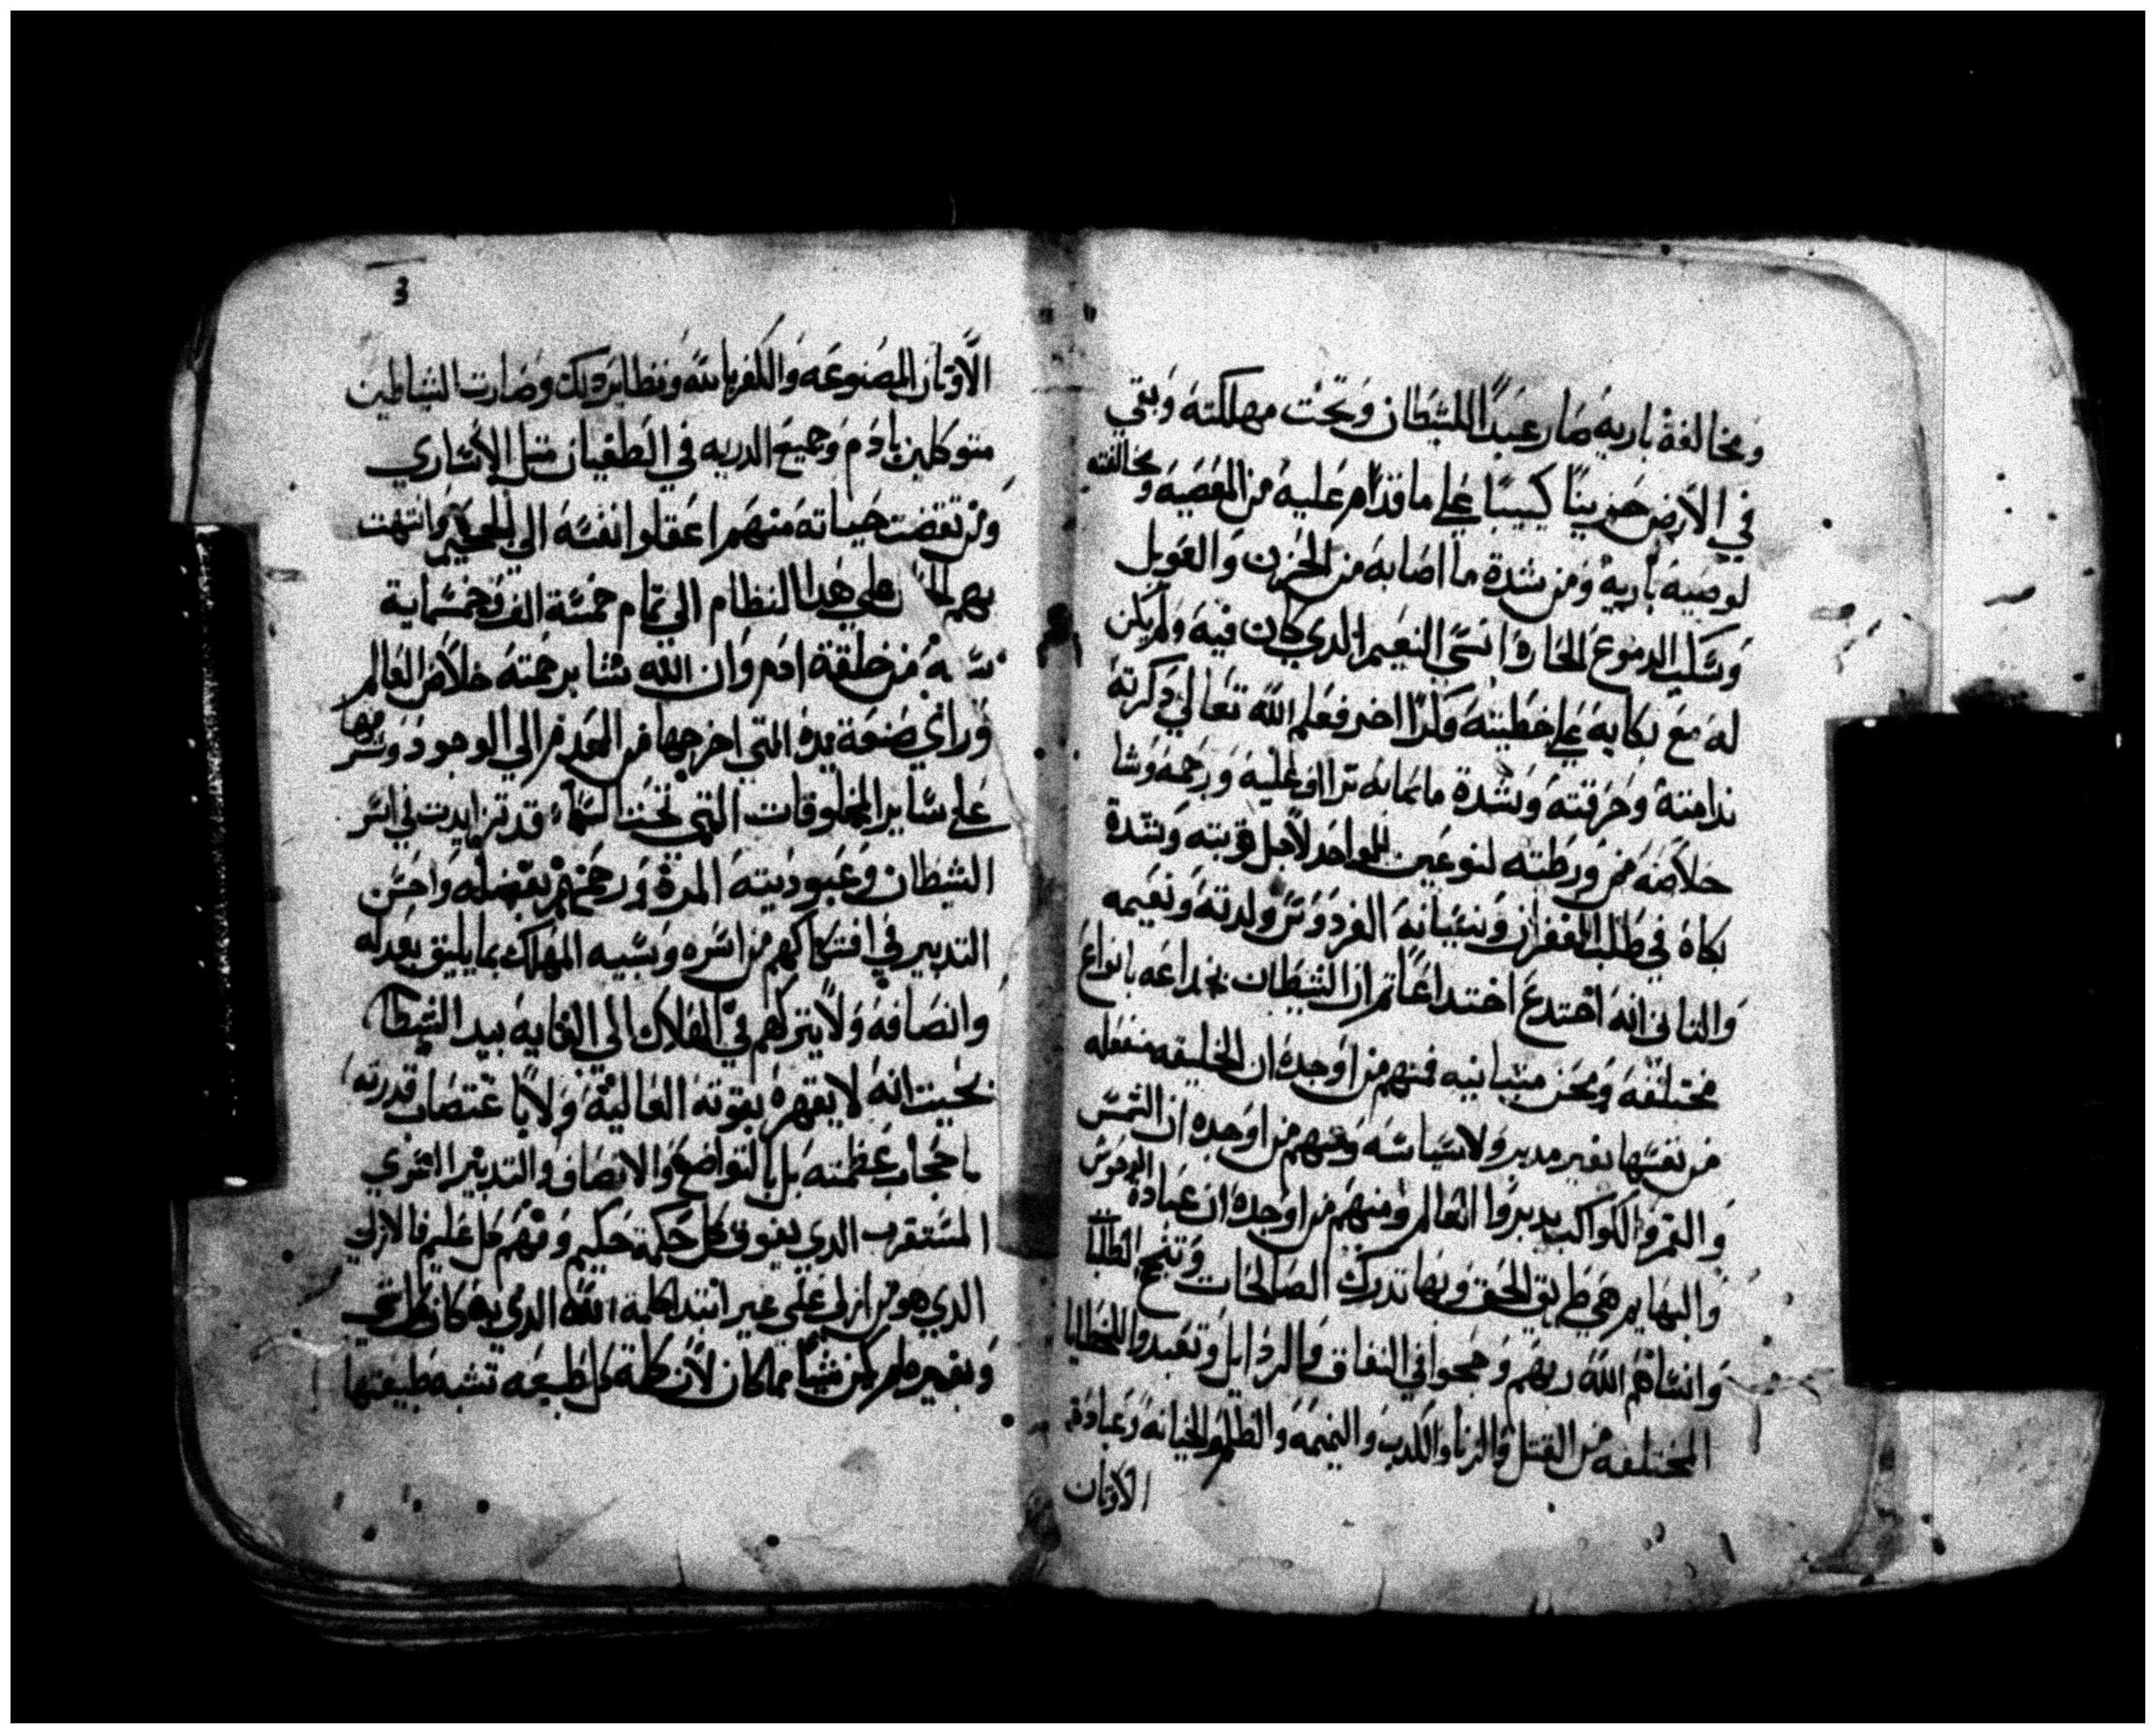 ومخالفة باريه صار عبدًا للشيطان وتحت مهلكته وبقي
في الارض حزينًا كييبًا علي ما قدام عليه من المعصيه ومخالفته
لوصية باريه ومن شدة ما اصابه من الحزن والعويل
وسكب الدموع الحاره انسي النعيم الدي كان فيه ولم يكن
له مع بكايه علي خطيته ولدًا اخر فعلم الله تعالي دكرته
ندامته وحرقته وشدة ترااف عليه ورحمه وشا
خلاصه من ورطته لنوعين الواحد لاجل توبته وشدة
بكاه في طلب الغفران ونسيانه الفردوس ولدته ونعيمه
والتاني انه اختدع اختداعًا تم ان الشيطان بخداعه بانواع
مختلفه ومحن متباينيه فمنهم من اوجده ان الخليقه منفعله
من نفسها بغير مدبر ولا سياسه ومنهم من اوجده ان الشمس
والقمر والكواكب يدبروا العالم ومنهم من اوجده ان عبادة الوحوش
والبهايم هي طريق الحق وبها تدرك الصالحات وتنجح الطلبا
وانساهم الله ربهم وجمحوا في النفاق والردايل وتعبدوا للخطايا
المختلفه من القتل والزنا والكدب والنميمه والظلم والخيانه وعبادة
الاوتان
3
الاوتان المصنوعه والكفر بالله ونظاير دلك وصارت الشياطين
متوكلين بادم وجميع الدريه في الطغيان متل الاساري
ومن تقضت حياته منهم اعقلوا نفسه الي الجحيم وانتهت
بهم علي هدا النظام الي تمام خمسة الف وخمسماية
سنه من خلقة ادم وان الله شا برحمته خلاص العالم
وراي صنعة يده التي اخرجها من العدم الي الوجود وشرفها
علي ساير المخلوقات التي تحت السماء قد تزايدت في اسر
الشيطان وعبوديته المرة ورحمهم بفضله واحسن
التدبير في افتكاكهم من اسره وسبيه المهلك بما يليق بعدله
وانصافه ولا يتركهم في الهلاك الي الغايه بيد الشيطان
بحيت انه لا يقهره بقوته العاليه ولا باغتصاب قدرته
باحجاب عظمته بل بالتواضع والانصاف والتدبير السري
المستقرب الدي يفوق كل حكمة حكيم وفهم كل عليم فالازلي
الدي هو من ازلي علي غير ابتدا كلمة الله الدي به كان كل شي
وبغيره لم يكن شيًا مما كان لان كلمة كل طبيعه تشبه طبيعتها